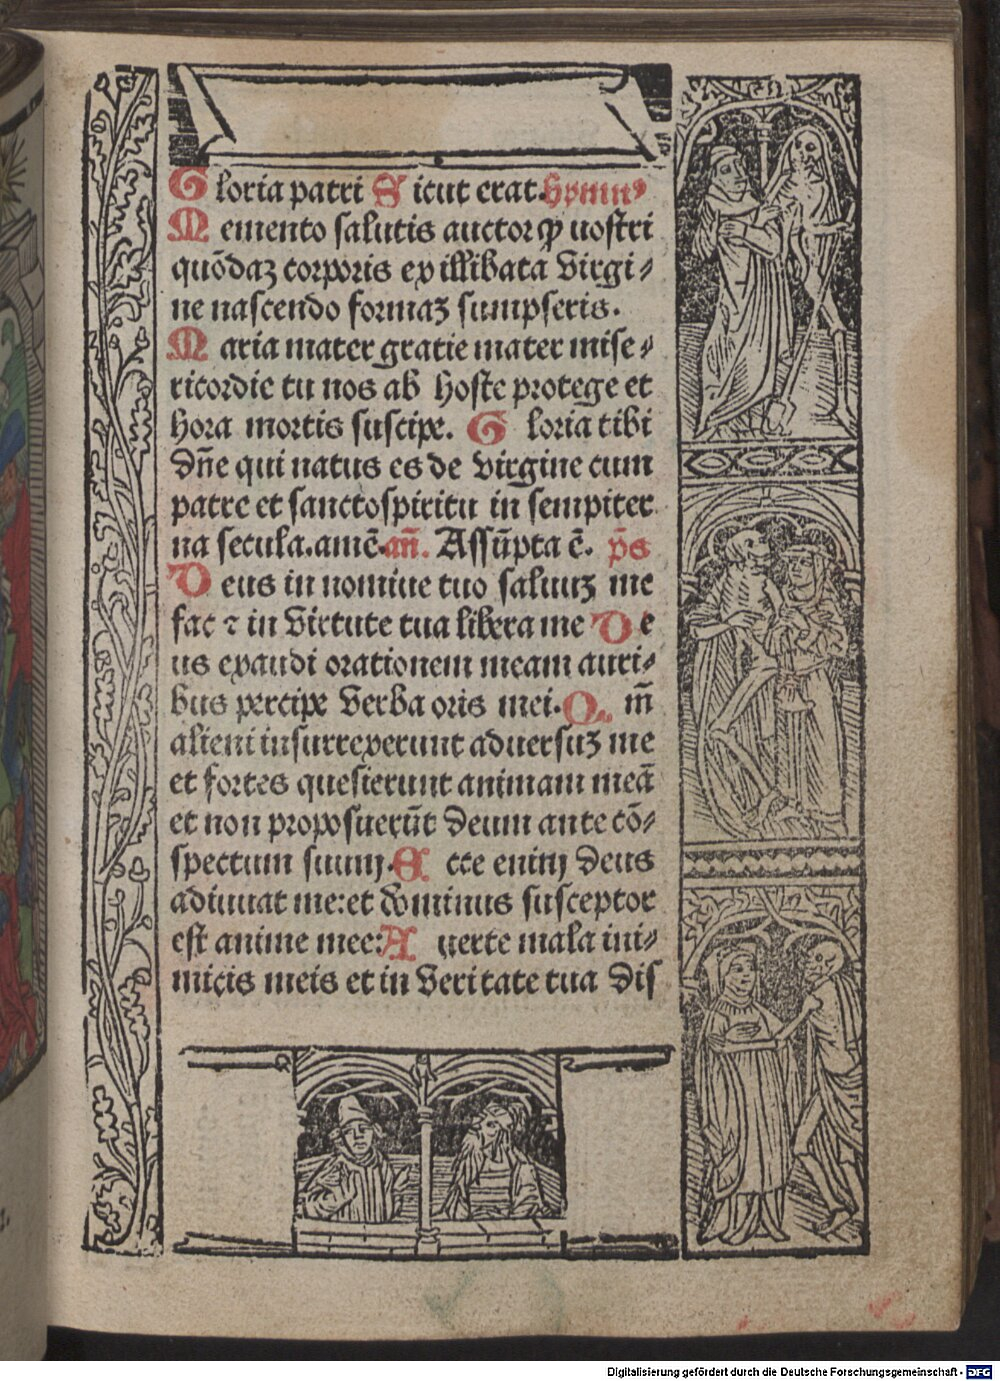 Gloria patri Sicut erat. hymnꝰ
Memento salutis auctor ꝙ nostri
quōdaꝫ corporis ex illibata Virgi⸗
ne nascendo formaꝫ sumpseris.
Maria mater gratie mater mise⸗
ricordie tu nos ab hoste protege et
hora mortis suscipe. Gloria tibi
dñe qui natus es de virgine cum
patre et sanctospiritu in sempiter
na secula.amē. añ. Assūpta ē. p̄s
Deus in nomine tuo saluuꝫ me
fac ⁊ in Virtute tua libera me De
us exaudi orationem meam auri⸗
bus percipe Verba oris mei. Qm̄
alieni insurrexerunt aduersuꝫ me
et fortes quesierunt animam meā
et non proposuerūt deum ante cō⸗
spectum suum. Ecce enim deus
adiuuat me:et dominus susceptor
est anime mee: Auerte mala ini⸗
micis meis et in Veritate tua dis
Digitalisierung gefördert durch die Deutsche Forschungsgemeinschaft - DFG